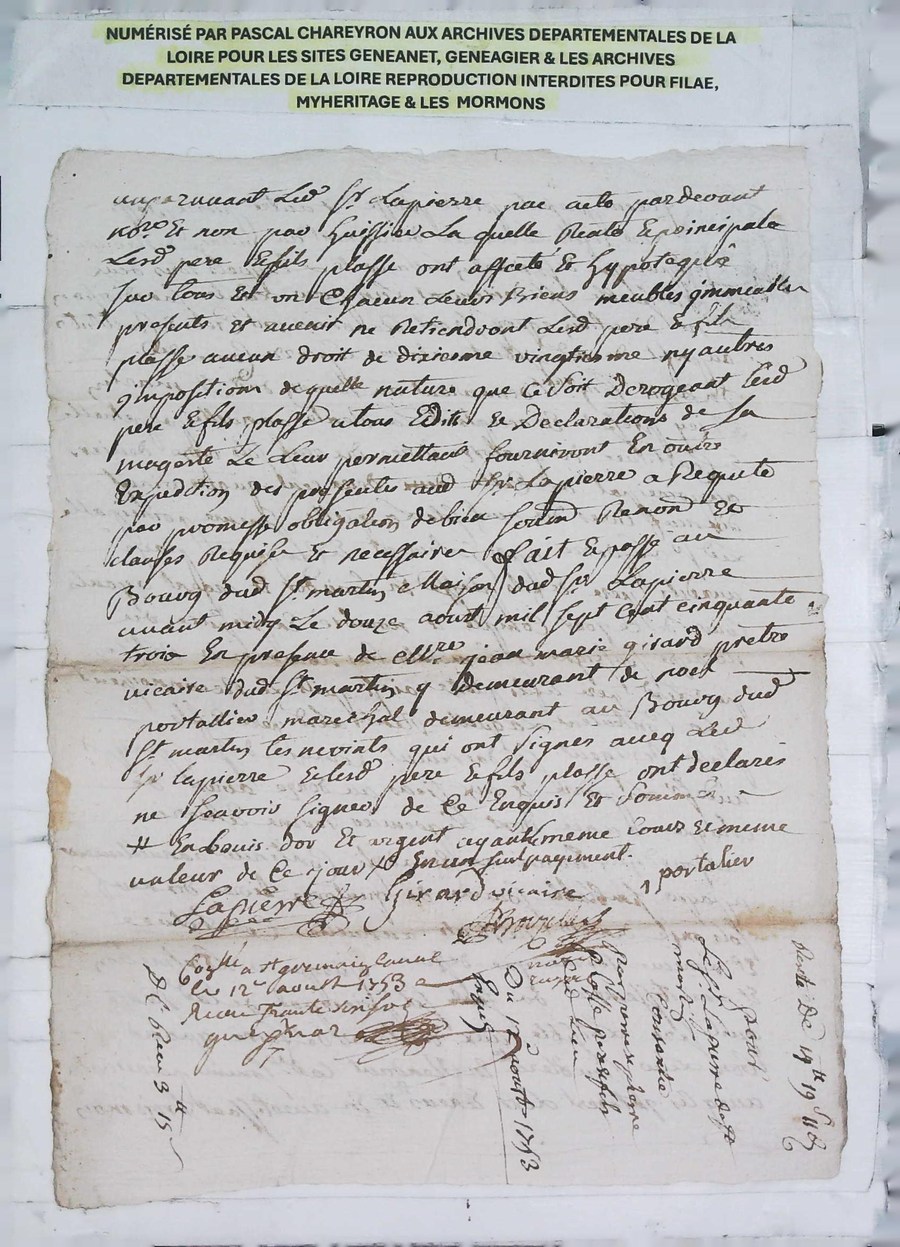 NUMÉRISÉ PAR PASCAL CHAREYRON AUX ARCHIVES DEPARTEMENTALES DE LA
LOIRE POUR LES SITES GENEANET, GENEAGIER & LES ARCHIVES
DEPARTEMENTALES DE LA LOIRE REPRODUCTION INTERDITES POUR FILAE,
MYHERITAGE & LES MORMONS
Led Sr Lapierre par acte pardevant
nore Et non par huissier La quelle Rente & principale
Lesd pere & fils plasse ont affecté Et hypotequé
sur tous Et un Chacun Leurs Biens meubles jmmeubles
presents Et avenir ne Retiendront Lesd pere & fils
plasse aucun droit de dixieme vingtieme ny autres
jmpositions de quelle nature que Ce soit Derogeant Lesd
pere & fils plasse a tous Edits & Declarations de Sa
magesté Le Leur permettant fourniront En outre
Expedition des presentes aud Sr Lapierre a Requete
par promesse obligation de bien
clauses Requises Et necessaires fait & passé au
Bourg dud St martin Maison dud Sr Lapierre
avant midy Le douze aoust mil sept Cent cinquante
trois En presence de Mre jean marie girard pretre
vicaire dud St martin y demeurant & de noel
portallier marechal demeurant au Bourg dud
St martin tesmoints qui ont Signés avec Led
Sr lapierre & lesd pere & fils plasse ont declarés
ne Scavoir signer de Ce Enquis Et Sommés
# En Louis dor Et argent ayant meme Cours & meme
valeur de Ce jour # En un seul payement.
Lapierre Girard vicaire portalier
Collé a St germain laval
le 12e aoust 1753
Recu trente
Du 12 aoust 1753
pierre
Consentie
Le Sr Lapierre de St
martin
Rente De 19tt 19s